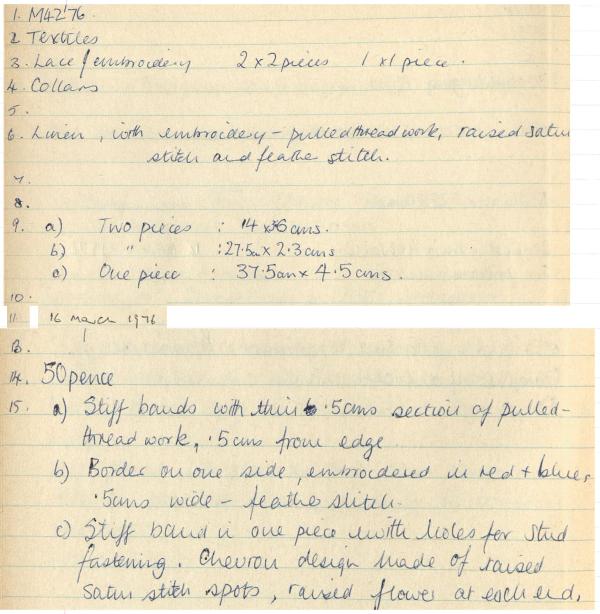 1. M42'76
2 Textiles
3. Lace / embroidery 2 x 2 pieces 1 x 1 piece.
4. Collars
5.
6. Linen, with embroidery - pulled thread work, raised satin
stitch and feather stitch.
7.
8.
9. a) Two pieces : 14 x 36 cms.
b) " : 27.5cm x 2.3 cms
c) One piece : 37.5cm x 4.5 cms.
10.
11. 16 March 1976
13.
14. 50 pence
15. a) Stiff bands with thin .5cms section of pulled-
thread work, .5cms from edge
b) Border on one side, embroidered in red + blue,
.5cms wide - feather stitch.
c) Stiff band in one piece with holes for stud
fastening. Chevron design made of raised
satin stitch spots, raised flower at each end.